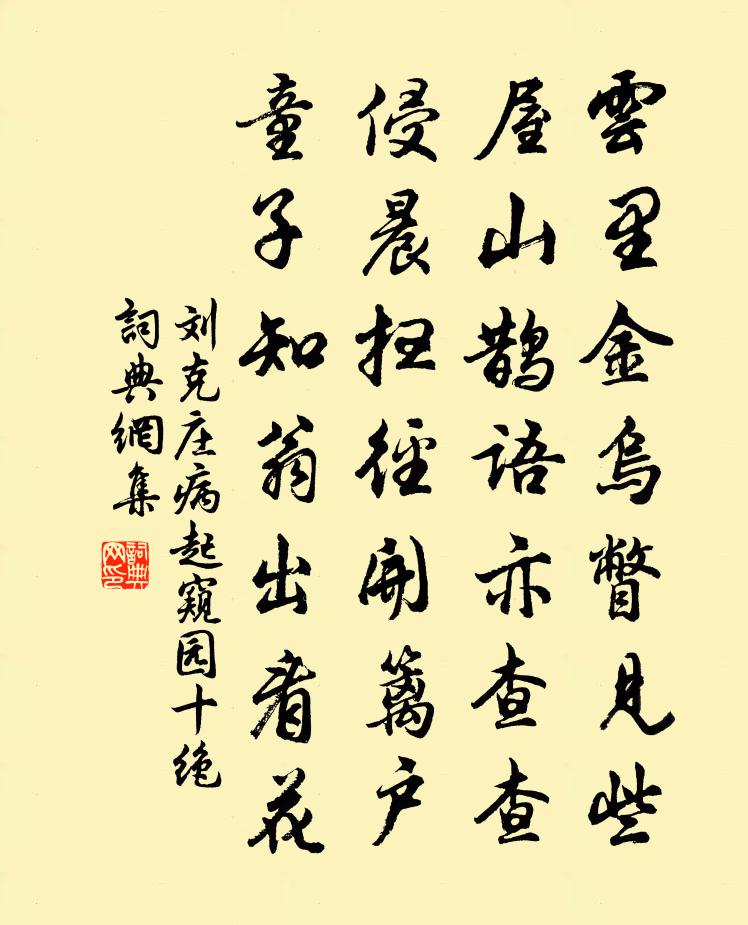 雲里金烏瞥見些
屋山鵲語亦查查
侵晨扫徑開籬戶
童子知翁出看花
刘克庄病起窺园十绝
詞典網集
詞典網印